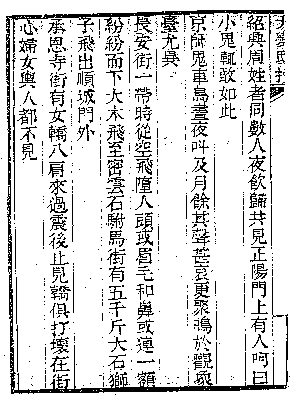 天變邸抄
紹興周姓者同數人夜飲歸共見正陽門上有人呵曰
小鬼輒敢如此
京師鬼車鳥晝夜叫及月餘其聲甚哀更聚鳴於觀象
臺尤異
長安街一帶時從空飛墮人頭或眉毛和鼻或連一額
紛紛而下大木飛至密雲石駙馬街有五千斤大石獅
子飛出順城門外
承恩寺街有女轎八肩來過震後止見轎俱打壞在街
心婦女與人都不見